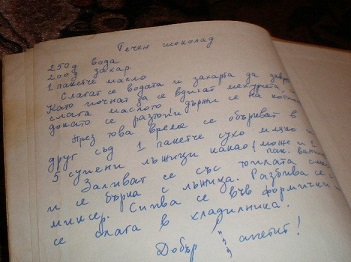 Течен шоколад
250g вода
200g захар
1 пакетче масло
Слагат се водата и захарта да
Като почнат да се вдигат мехурчета,
слага маслото
докато се разтопи държи се на
През това време се объркват в
друг съд 1 пакетче сухо мляко
5 супени лъжици какао (може и 1 пак.
Заливат се със топлата
и се бърка с лъжица. Разбива се с
миксер. Сипва се във формички и
се слага в хладилника!
Добър апетит!